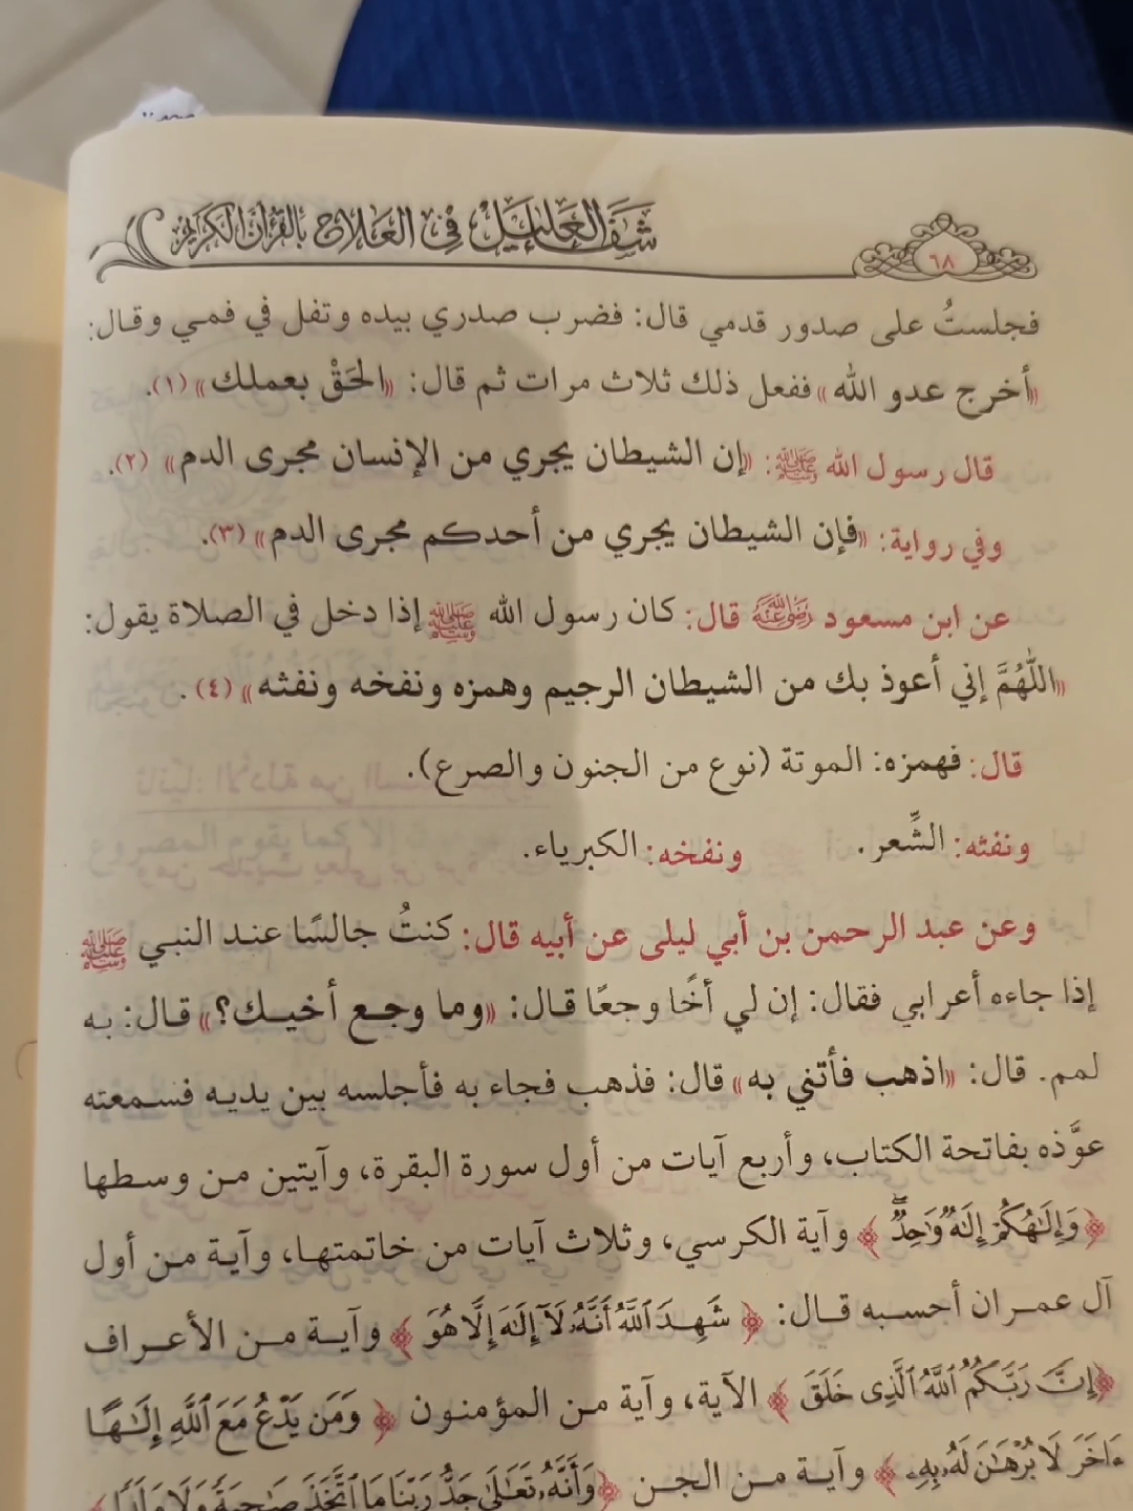 شفاء العليل في العلاج بالقرآن الكريم
٦٨
فجلستُ على صدور قدمي قال: فضرب صدري بيده وتفل في فمي وقال:
«أخرج عدو الله» ففعل ذلك ثلاث مرات ثم قال: «الحَقْ بعملك» (١).
قال رسول الله ﷺ: «إن الشيطان يجري من الإنسان مجرى الدم» (٢).
وفي رواية: «فإن الشيطان يجري من أحدكم مجرى الدم» (٣).
عن ابن مسعود رَضِيَ اللَّهُ عَنْهُ قال: كان رسول الله ﷺ إذا دخل في الصلاة يقول:
«اللَّهُمَّ إني أعوذ بك من الشيطان الرجيم وهمزه ونفخه ونفثه» (٤).
قال: فهمزه: الموتة (نوع من الجنون والصرع).
ونفثه: الشِّعر. ونفخه: الكبرياء.
وعن عبد الرحمن بن أبي ليلى عن أبيه قال: كنتُ جالسًا عند النبي ﷺ
إذا جاءه أعرابي فقال: إن لي أخًا وجعًا قال: «وما وجع أخيك؟» قال: به
لمم. قال: «اذهب فأتني به» قال: فذهب فجاء به فأجلسه بين يديه فسمعته
عوَّذه بفاتحة الكتاب، وأربع آيات من أول سورة البقرة، وآيتين من وسطها
﴿وَإِلَٰهُكُمْ إِلَٰهٌ وَٰحِدٌ﴾ وآية الكرسي، وثلاث آيات من خاتمتها، وآية من أول
آل عمران أحسبه قال: ﴿شَهِدَ ٱللَّهُ أَنَّهُۥ لَآ إِلَٰهَ إِلَّا هُوَ﴾ وآية من الأعراف
﴿إِنَّ رَبَّكُمُ ٱللَّهُ ٱلَّذِى خَلَقَ﴾ الآية، وآية من المؤمنون ﴿وَمَن يَدْعُ مَعَ ٱللَّهِ إِلَٰهًا
ءَاخَرَ لَا بُرْهَٰنَ لَهُۥ بِهِۦ﴾ وآية من الجن ﴿وَأَنَّهُۥ تَعَٰلَىٰ جَدُّ رَبِّنَا مَا ٱتَّخَذَ صَٰحِبَةً وَلَا وَلَدًا﴾